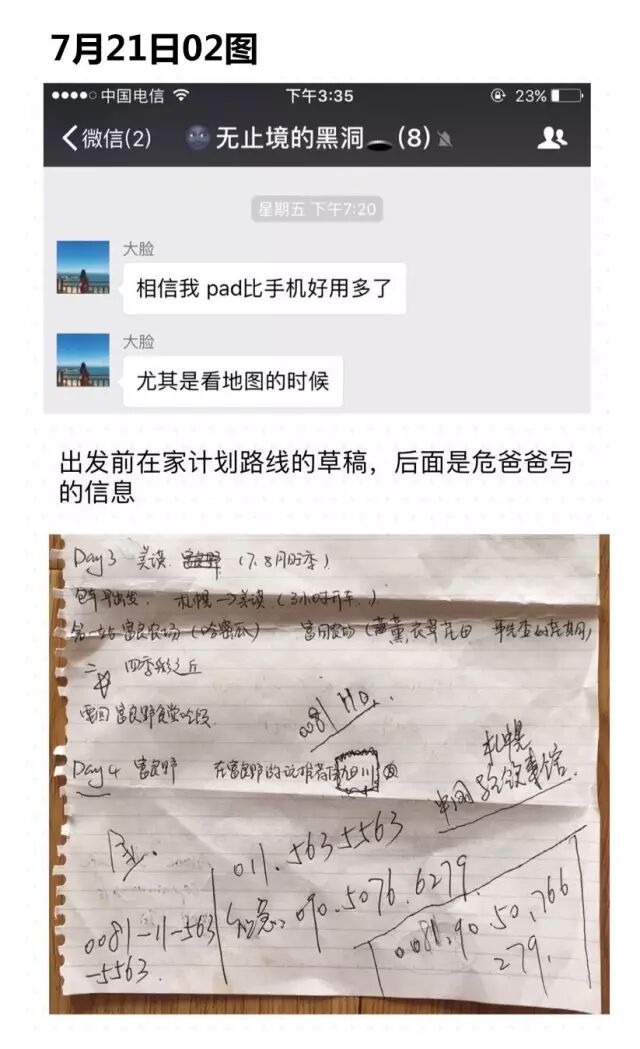 7月21日02图
中国电信 下午3:35 23%
微信(2) 无止境的黑洞 (8)
星期五 下午7:20
大脸
相信我 pad比手机好用多了
大脸
尤其是看地图的时候
出发前在家计划路线的草稿，后面是危爸爸写
的信息
Day 3 美瑛 (7.8月旺季)
包车早出发. 札幌→美瑛 (3小时开车.)
第一站 富良农场 (哈密瓜) 富田农场
二 四季彩之丘
要回富良野食堂吃饭
0081 HD.
Day 4 富良野 在富良野的话推荐 旭川
札幌
中国 领事馆.
011.563 5563
0081-11-563
-5563.
090.5076.6279.
0081,90.50,766
279.